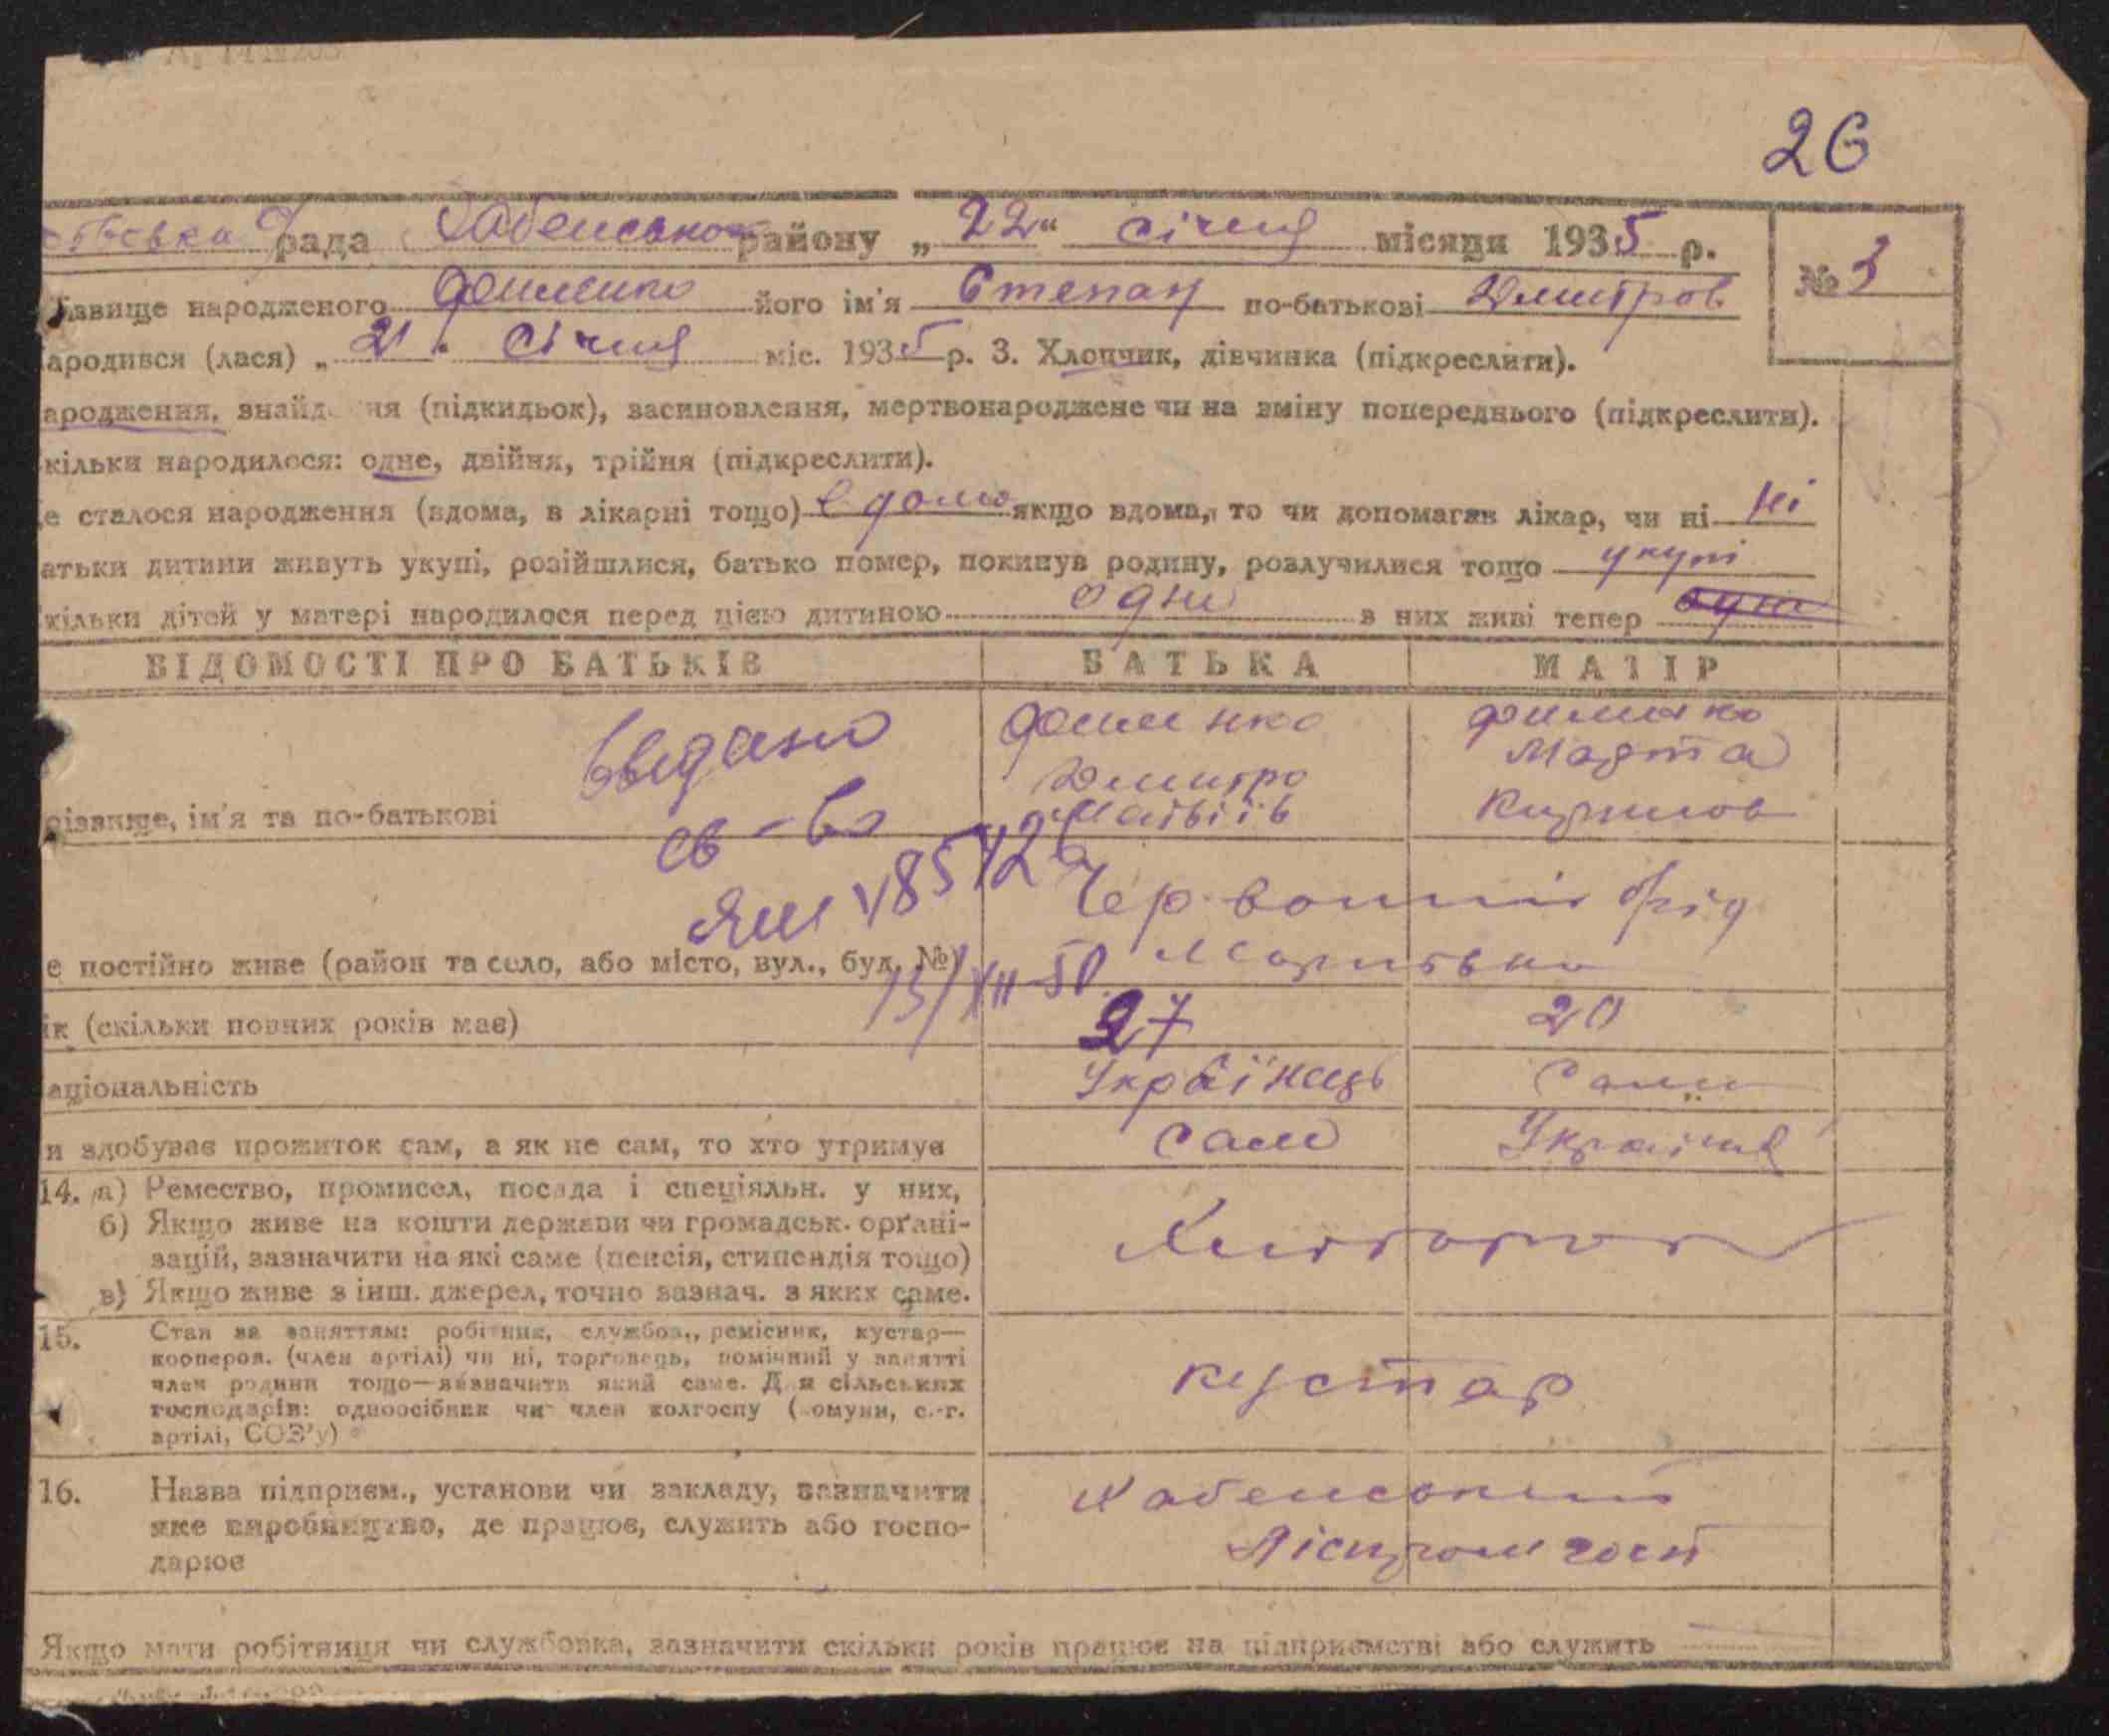 26
рада Хабенського району „ 22 “ січня місяця 1935 р.
№ 3
звище народженого Фоменко його ім'я Степан по-батькові Дмитров
ародився (лася) „ 21 “ січня міс. 1935 р. 3. Хлопчик, дівчинка (підкреслити).
ародження, знайд ня (підкидьок), засиновлення, мертвонароджене чи на зміну попереднього (підкреслити).
кільки народилося: одне, двійня, трійня (підкреслити).
е сталося народження (вдома, в лікарні тощо) в дома якщо вдома, то чи допомагав лікар, чи ні Ні
атьки дитини живуть укупі, розійшлися, батько помер, покинув родину, розлучилися тощо укупі
кільки дітей у матері народилося перед цією дитиною одни в них живі тепер
ВІДОМОСТІ ПРО БАТЬКІВ БАТЬКА МАТІР
Фоменко Фоменко
Дмитро Марта
різвище, ім'я та по-батькові Матвіїв Кирилов
св-во
ЯШ 185426
Червоний
е постійно живе (район та село, або місто, вул., буд. №)
13/XII-50
ік (скільки повних років має) 27 20
аціональність Українець Сами
и здобуває прожиток сам, а як не сам, то хто утримує сам Українка
14. а) Ремество, промисел, посада і спеціяльн. у них,
б) Якщо живе на кошти держави чи громадськ. орґані-
зацій, зазначити на які саме (пенсія, стипендія тощо)
в) Якщо живе з інш. джерел, точно зазнач. з яких саме.
15. Стан за заняттям: робітник, службов., ремісник, кустар—
коопероз. (член артілі) чи ні, торговець, помічний у занятті
член родини тощо—зазначити який саме. Д я сільських
господарів: одноосібник чи член колгоспу ( омуни, с.-г.
артілі, СОЗ'у)
кустар
16. Назва підприєм., установи чи закладу, зазначити
яке виробництво, де працює, служить або госпо-
дарює
Хабенський
Ліспромгосп
Якщо мати робітниця чи службовка, зазначити скільки років працює на підприємстві або служить